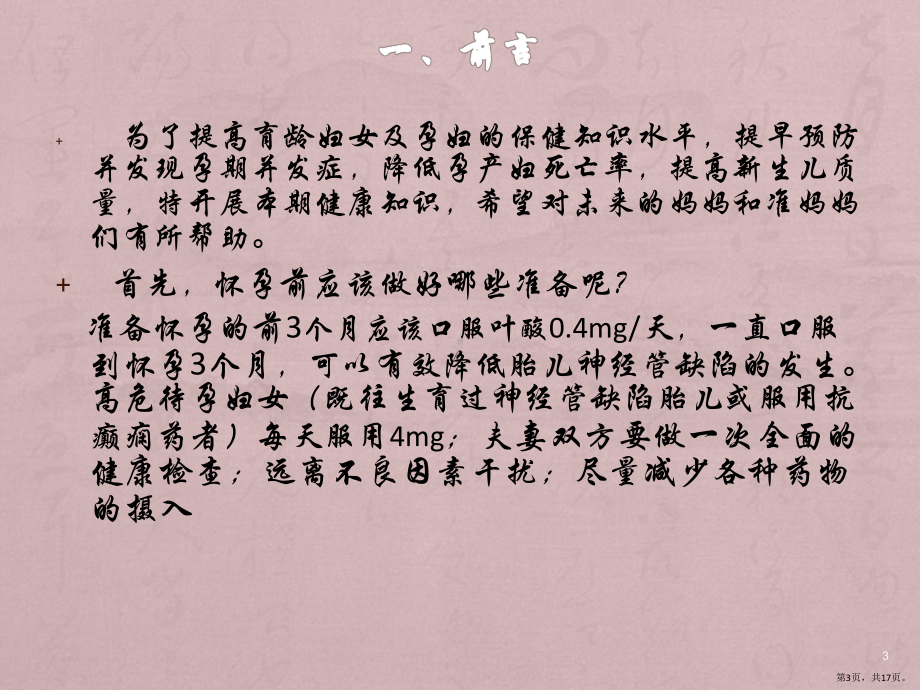 一、前言
+ 为了提高育龄妇女及孕妇的保健知识水平，提早预防
并发现孕期并发症，降低孕产妇死亡率，提高新生儿质
量，特开展本期健康知识，希望对未来的妈妈和准妈妈
们有所帮助。
+ 首先，怀孕前应该做好哪些准备呢？
准备怀孕的前3个月应该口服叶酸0.4mg/天，一直口服
到怀孕3个月，可以有效降低胎儿神经管缺陷的发生。
高危待孕妇女（既往生育过神经管缺陷胎儿或服用抗
癫痫药者）每天服用4mg；夫妻双方要做一次全面的
健康检查；远离不良因素干扰；尽量减少各种药物
的摄入
3
第3页，共17页。